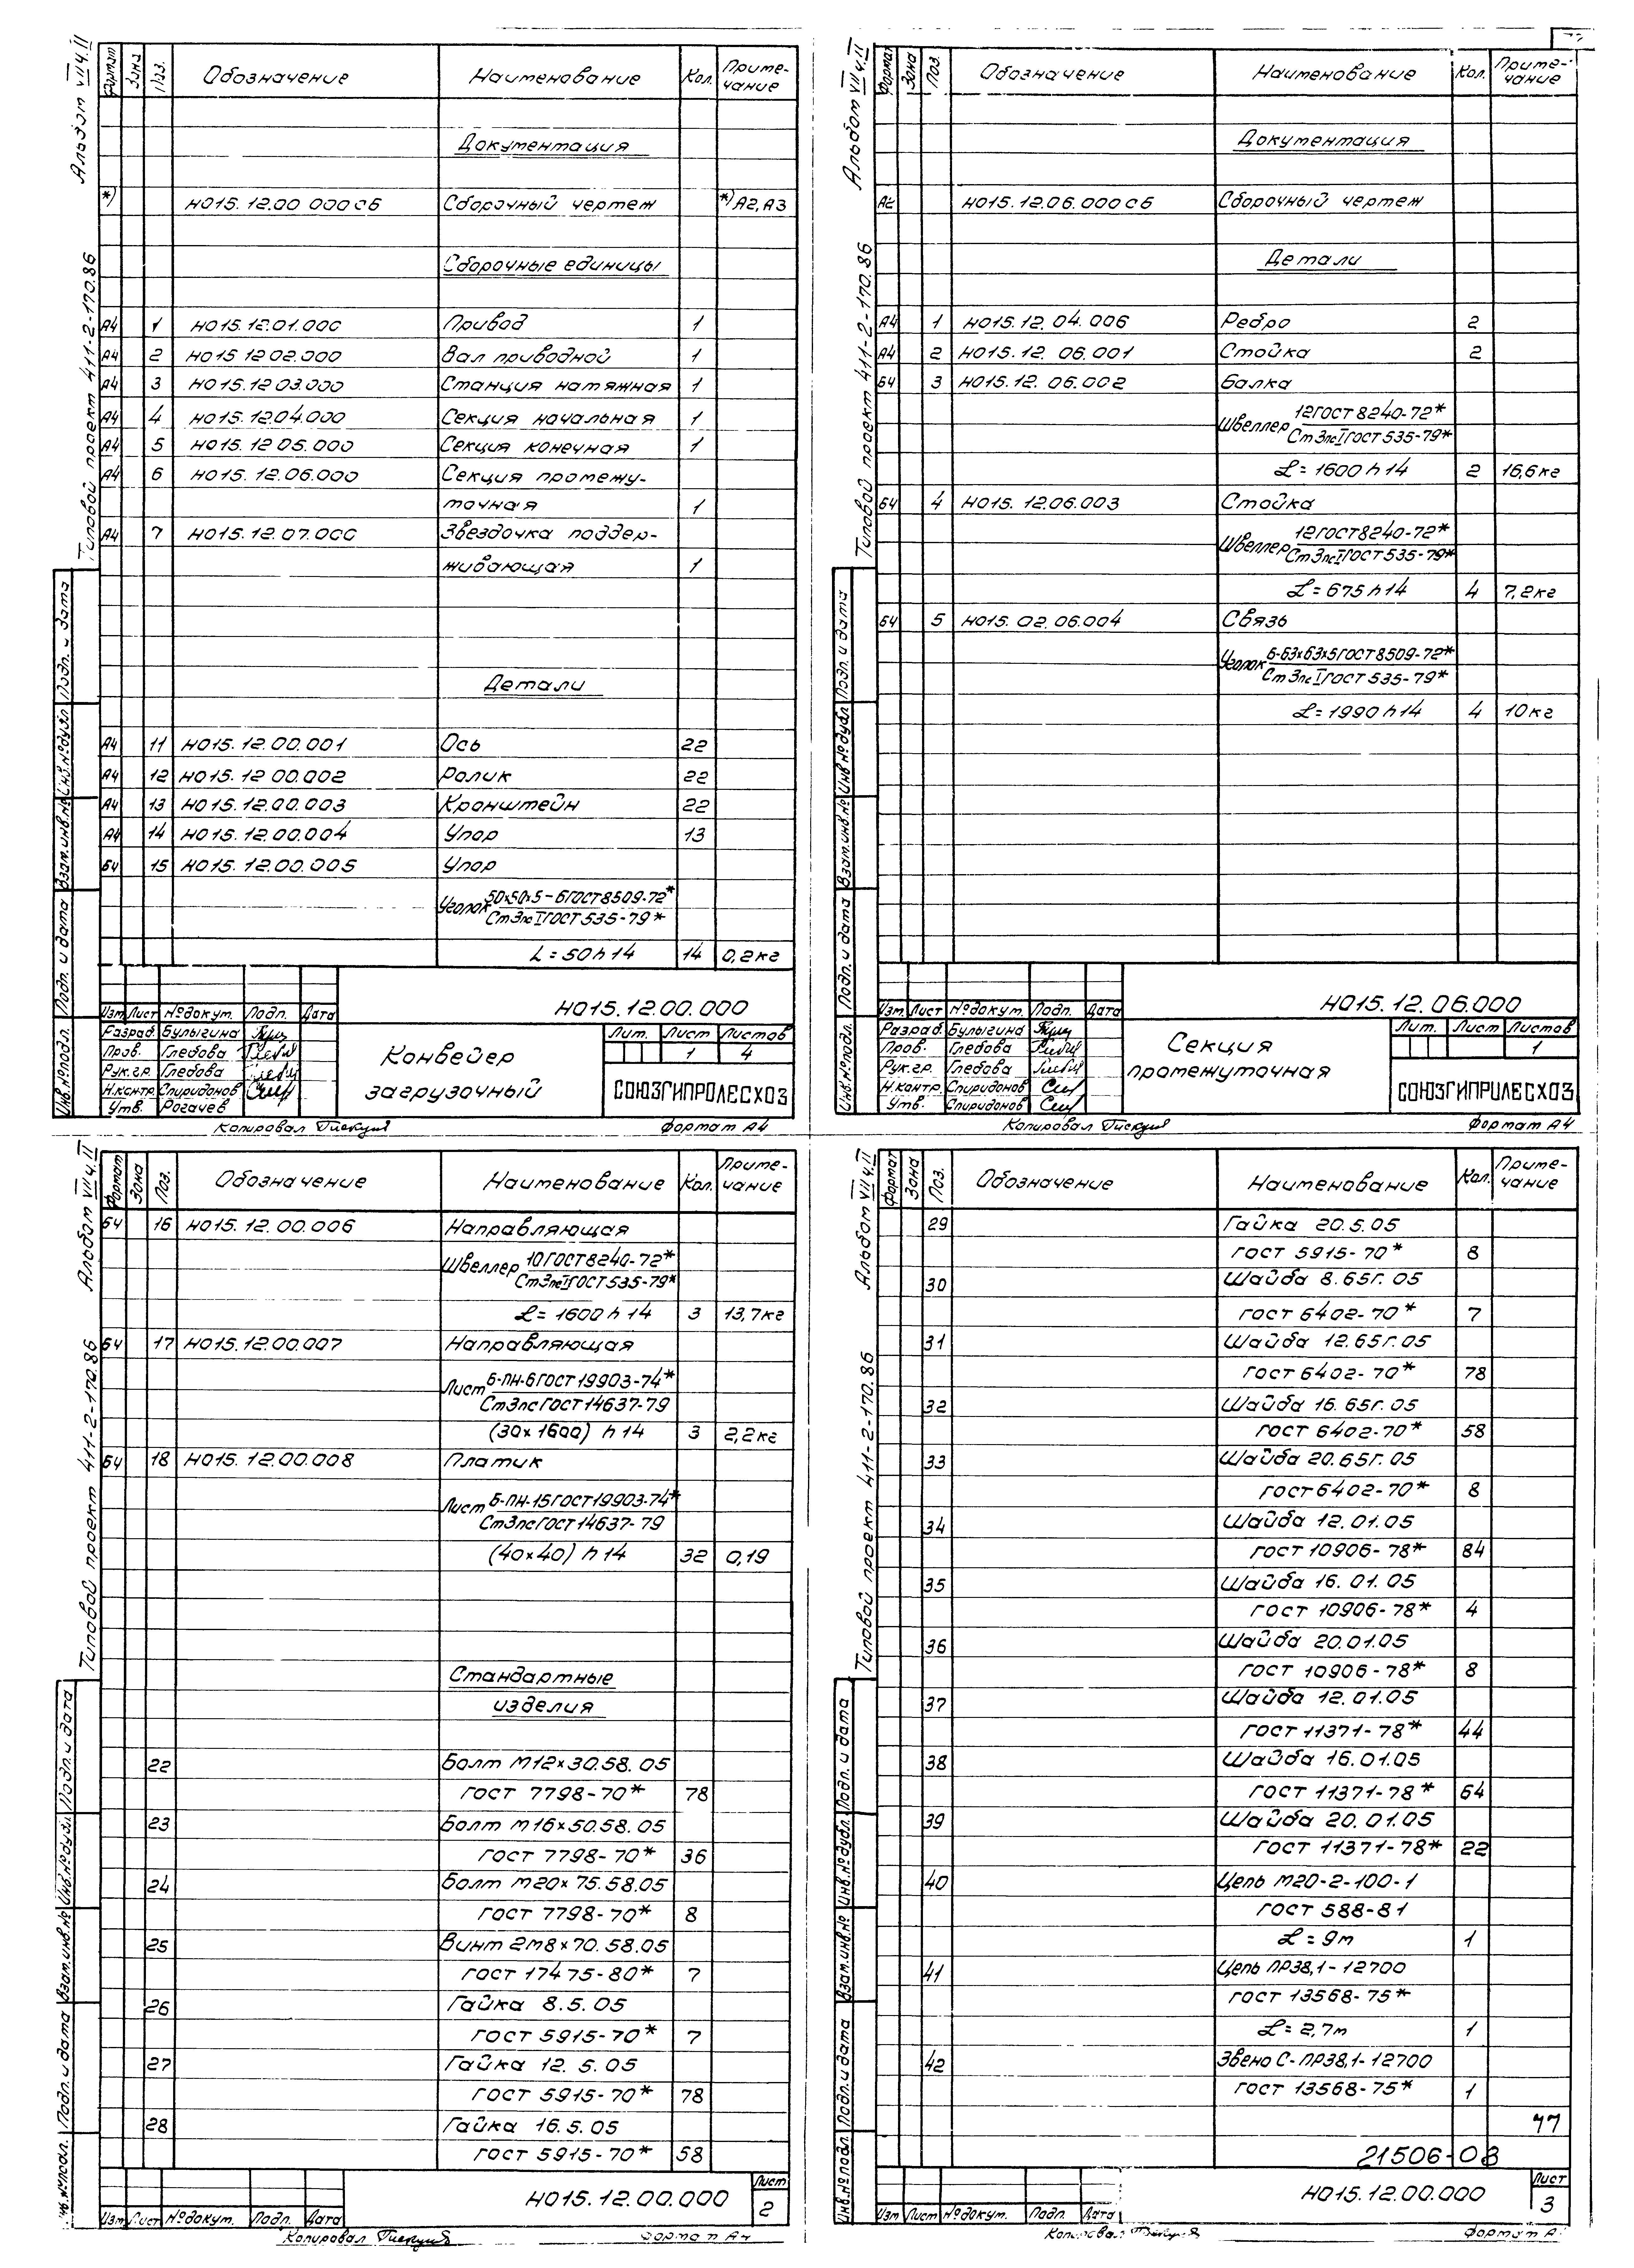 Альбом VII ч. II
Типовой проект 411-2-170.86
Формат Зона Поз. Обозначение Наименование Кол. Приме-
чание
Документация
*) НО15.12.00 000 СБ Сборочный чертеж *) А2, А3
Сборочные единицы
А4 1 НО15.12.01.000 Привод 1
А4 2 НО15 12 02.000 Вал приводной 1
А4 3 НО15.12 03.000 Станция натяжная 1
А4 4 НО15.12.04.000 Секция начальная 1
А4 5 НО15.12 05.000 Секция конечная 1
А4 6 НО15.12.06.000 Секция промежу-
точная 1
А4 7 НО15.12.07.000 Звездочка поддер-
живающая 1
Детали
А4 11 НО15.12.00.001 Ось 22
А4 12 НО15.12 00.002 Ролик 22
А4 13 НО15.12.00.003 Кронштейн 22
А4 14 НО15.12.00.004 Упор 13
БЧ 15 НО15.12.00.005 Упор
Уголок 50х50х5-Б ГОСТ 8509-72*
Ст3пс I ГОСТ 535-79*
L=50 h14 14 0,2кг
Инв.№подл. Подп. и дата Взам.инв.№ Инв.№дубл Подп. и дата
НО15.12.00.000
Изм Лист №докум. Подп. Дата
Разраб Булыгина
Пров. Глебова
Рук.гр. Глебова
Н.контр. Спиридонов
Утв. Рогачев
Конвейер
загрузочный
Лит. Лист Листов
1 4
СОЮЗГИПРОЛЕСХОЗ
Копировал Формат А4
Альбом VII ч. II
Типовой проект 411-2-170.86
Формат Зона Поз. Обозначение Наименование Кол. Приме-
чание
Документация
А2 НО15.12.06.000 СБ Сборочный чертеж
Детали
А4 1 НО15.12.04.006 Ребро 2
А4 2 НО15.12.06.001 Стойка 2
БЧ 3 НО15.12.06.002 Балка
Швеллер 12 ГОСТ 8240-72*
Ст3пс I ГОСТ 535-79*
L=1600 h14 2 16,6кг
БЧ 4 НО15.12.06.003 Стойка
Швеллер 12 ГОСТ 8240-72*
Ст3пс I ГОСТ 535-79*
L=675 h14 4 7,2кг
БЧ 5 НО15.02.06.004 Связь
Уголок Б-63х63х5 ГОСТ 8509-72*
Ст3пс I ГОСТ 535-79*
L=1990 h14 4 10кг
Инв.№подл. Подп. и дата Взам.инв.№ Инв.№дубл Подп. и дата
НО15.12.06.000
Изм. Лист №докум. Подп. Дата
Разраб. Булыгина
Пров. Глебова
Рук.гр. Глебова
Н.контр. Спиридонов
Утв. Спиридонов
Секция
промежуточная
Лит. Лист Листов
1
СОЮЗГИПРОЛЕСХОЗ
Копировал Формат А4
Альбом VII ч. II
Типовой проект 411-2-170.86
Формат Зона Поз. Обозначение Наименование Кол. Приме-
чание
БЧ 16 НО15.12.00.006 Направляющая
Швеллер 10 ГОСТ 8240-72*
Ст3пс I ГОСТ 535-79*
L=1600 h14 3 13,7кг
БЧ 17 НО15.12.00.007 Направляющая
Лист Б-ПН-6 ГОСТ 19903-74*
Ст3пс ГОСТ 14637-79
(30х1600) h14 3 2,2кг
БЧ 18 НО15.12.00.008 Платик
Лист Б-ПН-15 ГОСТ 19903-74*
Ст3пс ГОСТ 14637-79
(40х40) h14 32 0,19
Стандартные
изделия
22 Болт М12х30.58.05
ГОСТ 7798-70* 78
23 Болт М16х50.58.05
ГОСТ 7798-70* 36
24 Болт М20х75.58.05
ГОСТ 7798-70* 8
25 Винт 2М8х70.58.05
ГОСТ 17475-80* 7
26 Гайка 8.5.05
ГОСТ 5915-70* 7
27 Гайка 12.5.05
ГОСТ 5915-70* 78
28 Гайка 16.5.05
ГОСТ 5915-70* 58
Подп. и дата Взам.инв.№ Инв.№дубл Подп. и дата
НО15.12.00.000
Лист
2
Изм Лист №докум. Подп. Дата
Копировал Формат А4
Альбом VII ч. II
Типовой проект 411-2-170.86
Формат Зона Поз. Обозначение Наименование Кол. Приме-
чание
29 Гайка 20.5.05
ГОСТ 5915-70* 8
30 Шайба 8.65Г.05
ГОСТ 6402-70* 7
31 Шайба 12.65Г.05
ГОСТ 6402-70* 78
32 Шайба 16.65Г.05
ГОСТ 6402-70* 58
33 Шайба 20.65Г.05
ГОСТ 6402-70* 8
34 Шайба 12.01.05
ГОСТ 10906-78* 84
35 Шайба 16.01.05
ГОСТ 10906-78* 4
36 Шайба 20.01.05
ГОСТ 10906-78* 8
37 Шайба 12.01.05
ГОСТ 11371-78* 44
38 Шайба 16.01.05
ГОСТ 11371-78* 64
39 Шайба 20.01.05
ГОСТ 11371-78* 22
40 Цепь М20-2-100-1
ГОСТ 588-81
L=9м 1
41 Цепь ПР38,1-12700
ГОСТ 13568-75*
L=2,7м 1
42 Звено С-ПР38,1-12700
ГОСТ 13568-75* 1
77
21506-03
Инв.№подл. Подп. и дата Взам.инв.№ Инв.№дубл. Подп. и дата
НО15.12.00.000
Лист
3
Изм Лист №докум. Подп. Дата
Копировал Формат А